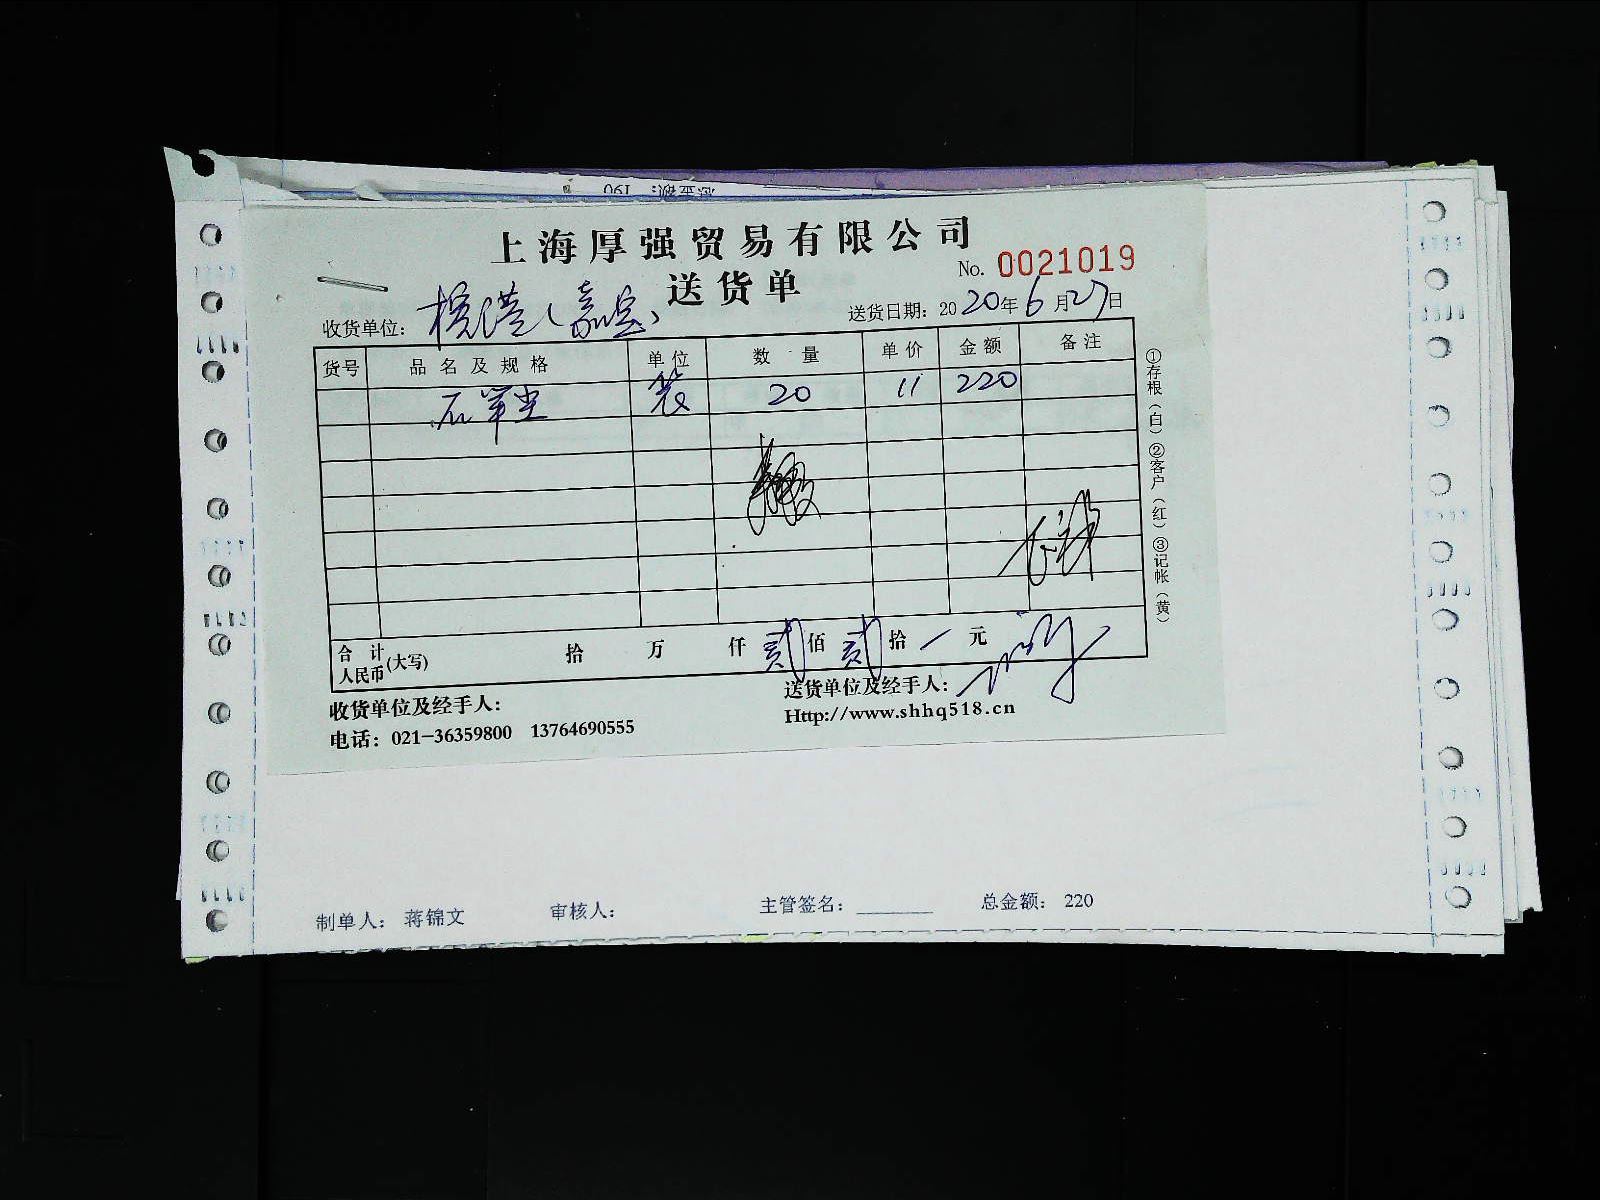 总金额: 190
上海厚强贸易有限公司
No. 0021019
送货单
收货单位: 港(嘉定)
送货日期: 2020年6月27日
货号 品名及规格 单位 数量 单价 金额 备注
20 11 220
①存根(白)②客户(红)③记帐(黄)
合计人民币(大写) 拾 万 仟 贰佰 贰拾 一元
收货单位及经手人:
送货单位及经手人:
电话: 021-36359800 13764690555
Http://www.shhq518.cn
制单人: 蒋锦文 审核人: 主管签名: ________ 总金额: 220